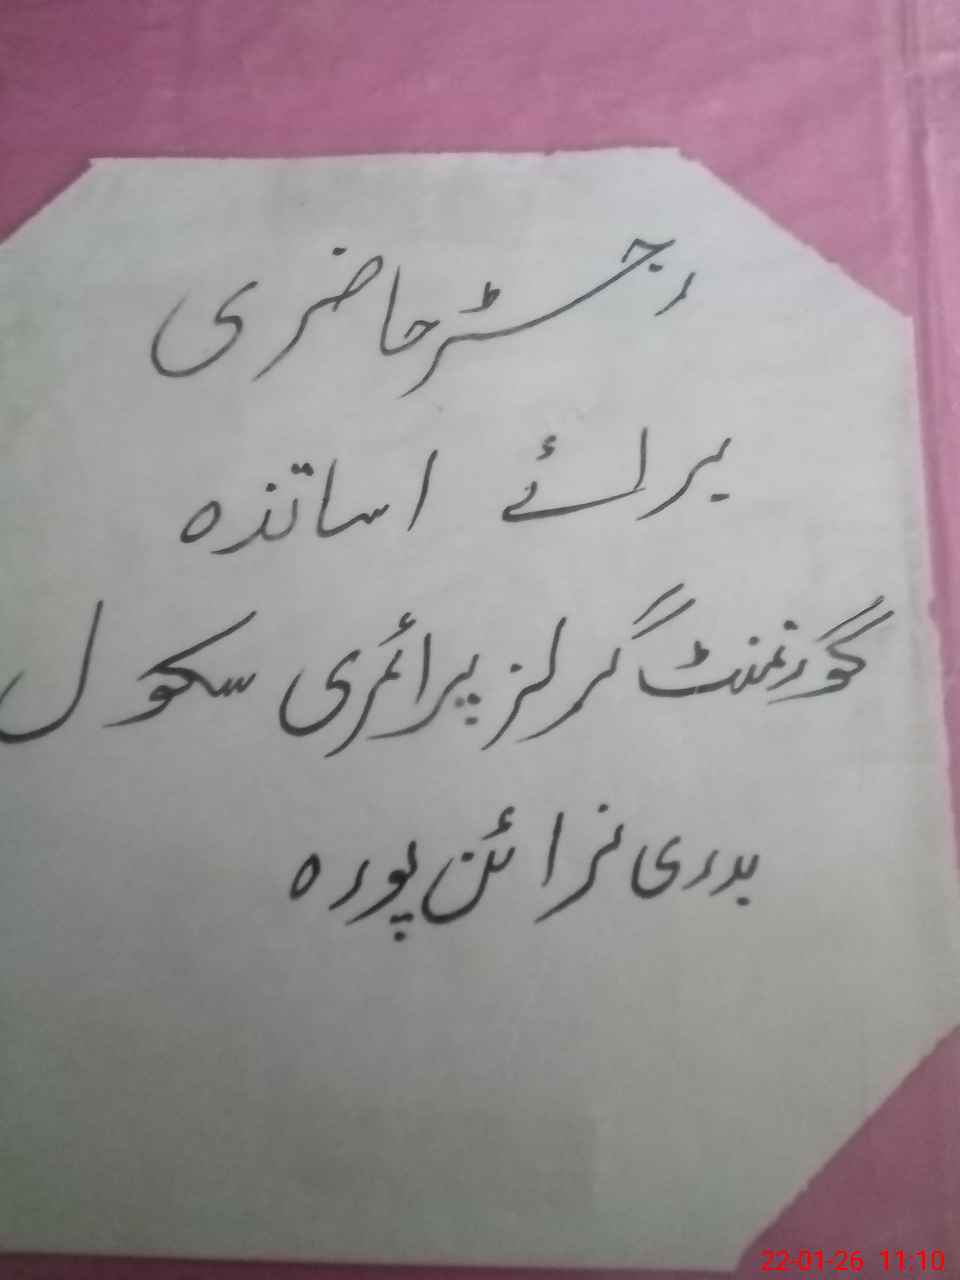 رجسٹر حاضری
برائے اساتذہ
گورنمنٹ گرلز پرائمری سکول
بدری نرائن پورہ
22-01-26 11:10